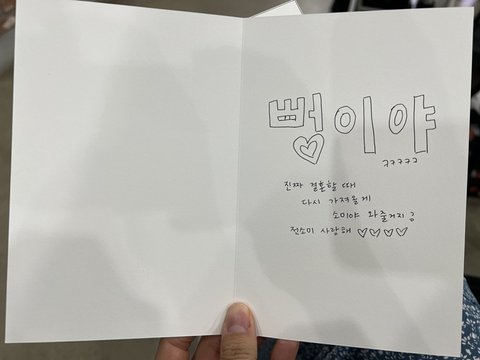 뻥이야
ㅋㅋㅋㅋㅋ
진짜 결혼할 때
다시 가져올게
소미야 와줄거지
전소미 사랑해 ♡♡♡♡